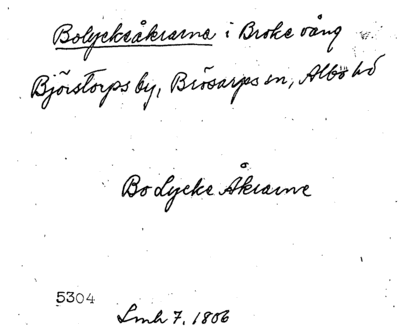 Bolyckeåkrarna i Broke vång
Björstorps by, Brösarps sn, Albo hd
Bo Lycke Åkrarne
5304
Lmh 7, 1806